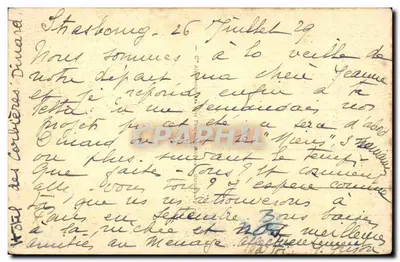 Strasbourg. 26 Juillet 29
Nous sommes à la veille de
notre départ ma chère Jeanne
et je réponds enfin à ta
lettre. Tu me demandais nos
projets pr cet été ce sera d'abord
Dinard où sont les "Mem", 3 semaines
ou plus suivant le temps.
Que faites-vous? Et comment
allez-vous tous? J'espère comme
que ns ns retrouverons à
Paris en Septembre. Bons baisers
à ta nichée et nos meilleures
amitiés au Ménage
à toi.
Hotel des Corbières Dinard